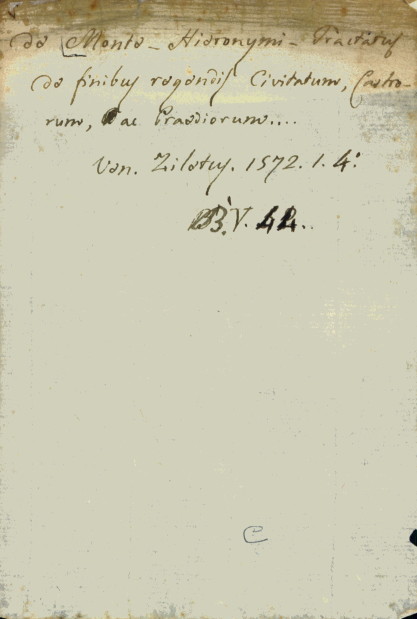 de Monte - Hieronymi - Tractatus
de finibus regendis Civitatum, Castro-
rum, ac Praediorum....
Ven. Ziletus. 1572. 1. 4:
B. V. 42..
C